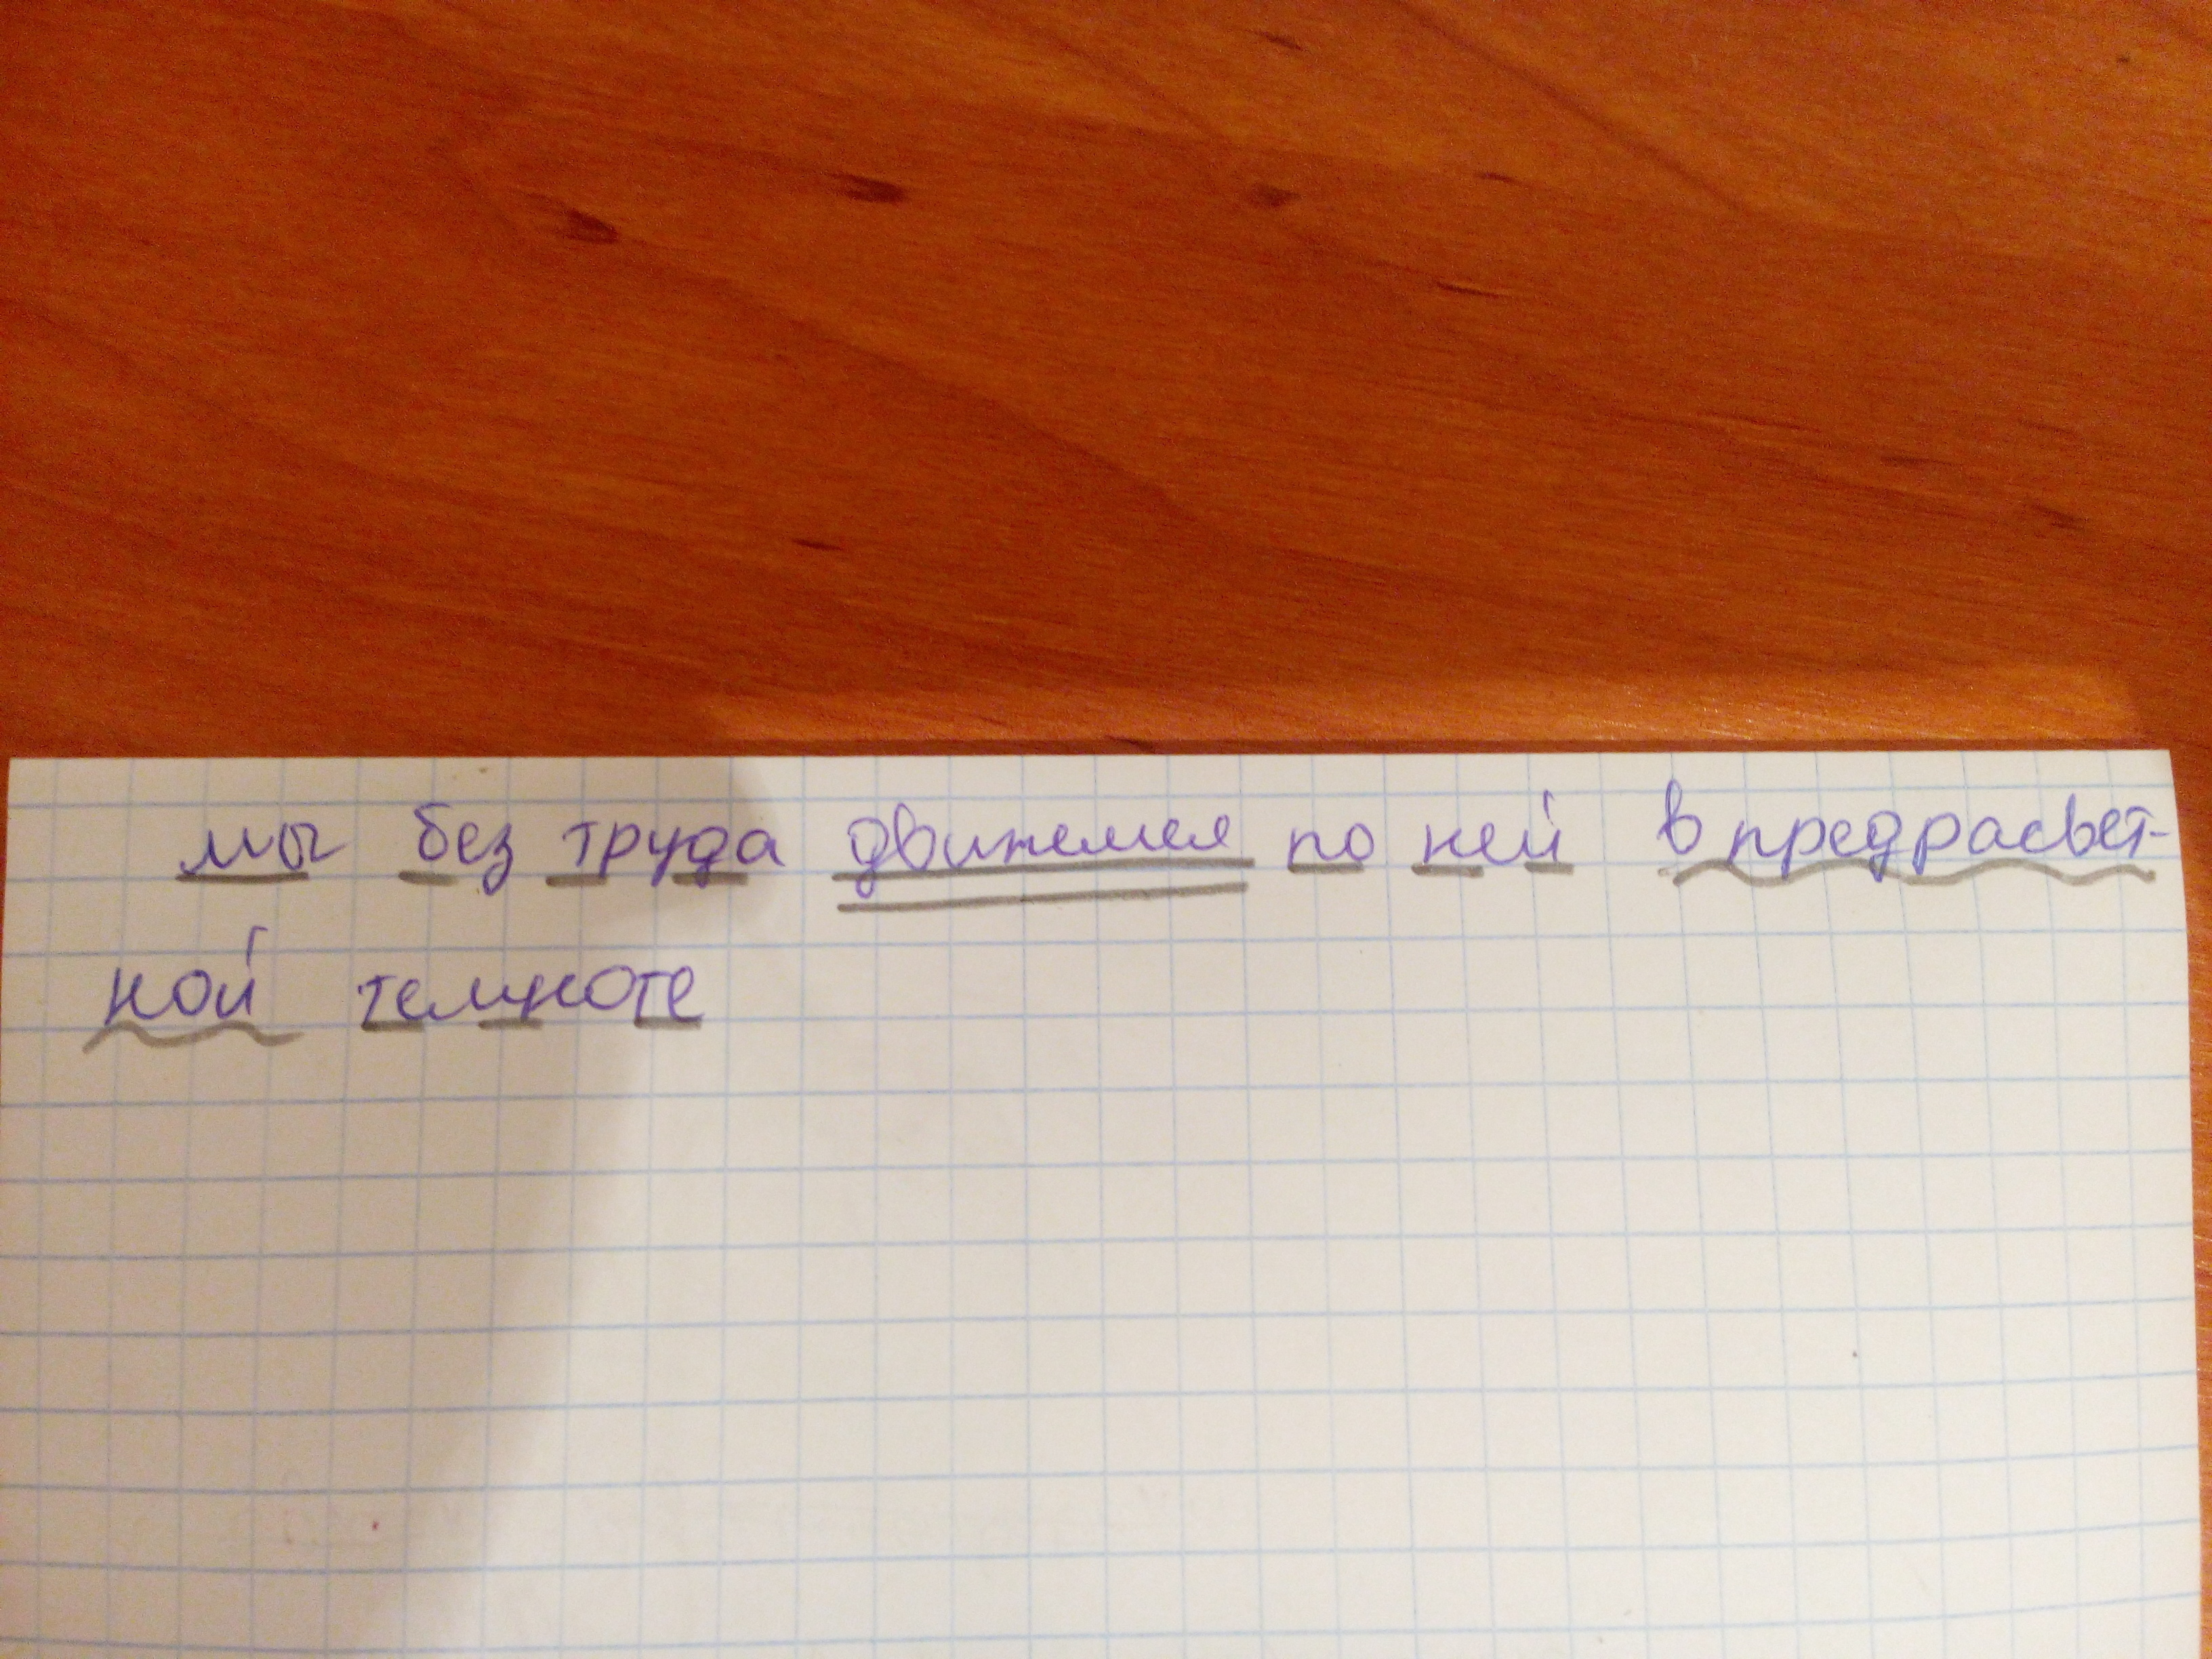 мы без труда движемся по ней в предрасвет-
ной темноте